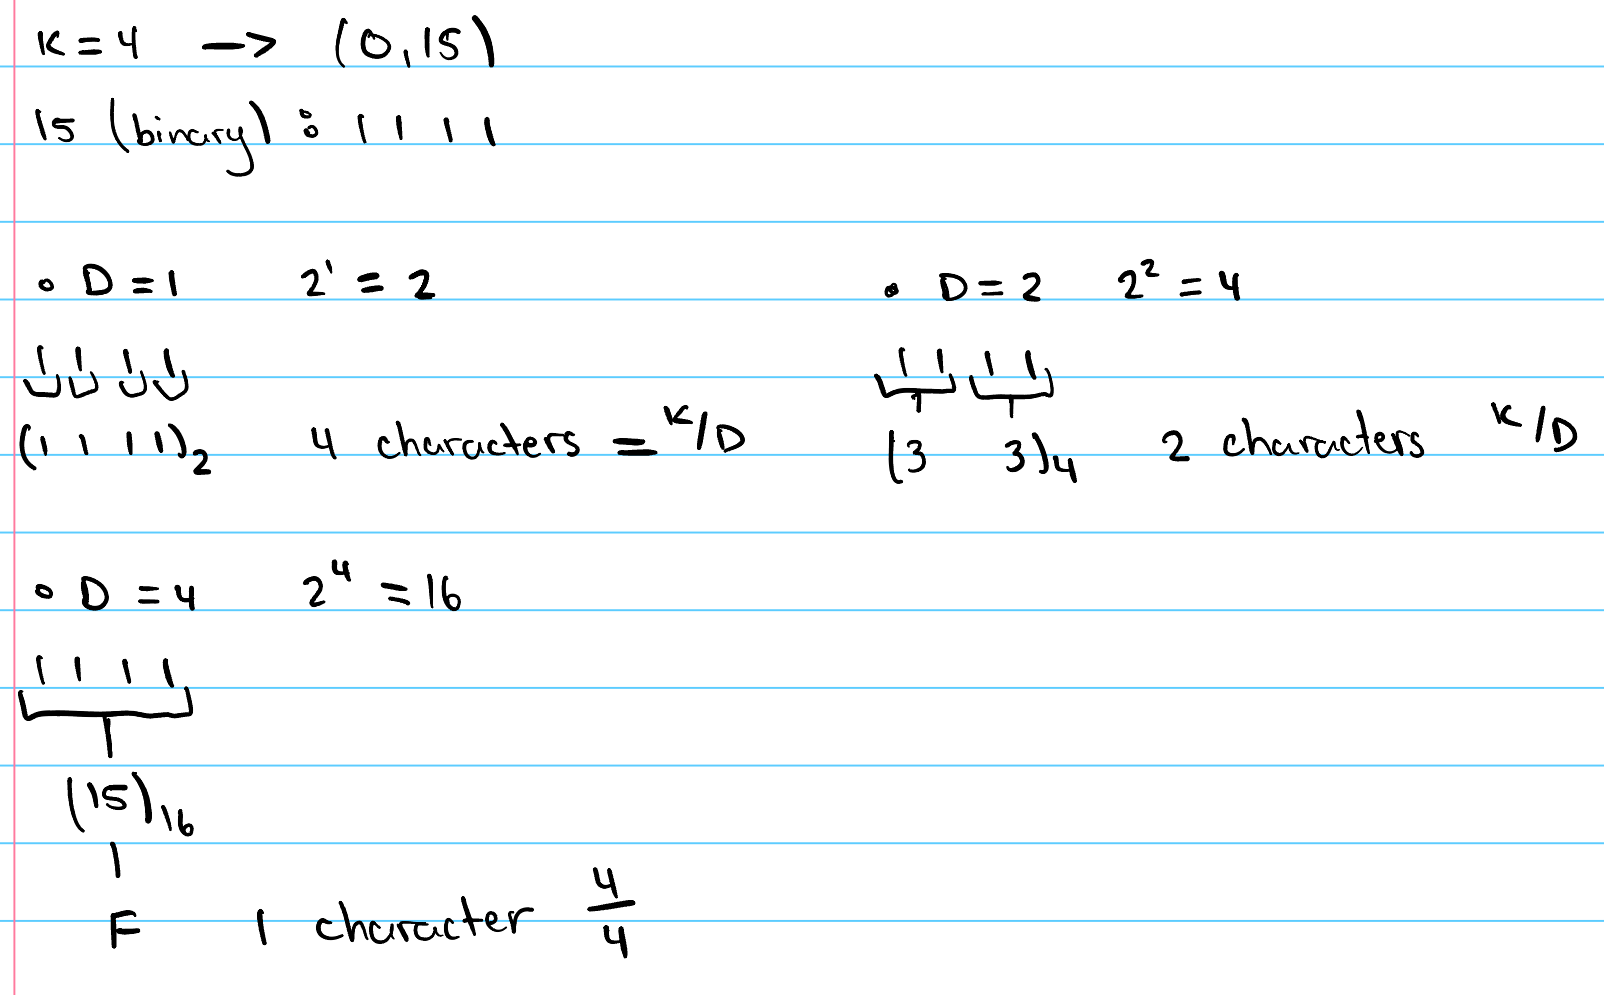 K = 4 → (0,15)
15 (binary) : 1 1 1 1
• D = 1 2¹ = 2
1 1 1 1
(1 1 1 1)₂ 4 characters = K/D
• D = 2 2² = 4
1 1 1 1
(3 3)₄ 2 characters K/D
• D = 4 2⁴ = 16
1 1 1 1
(15)₁₆
F 1 character 4/4